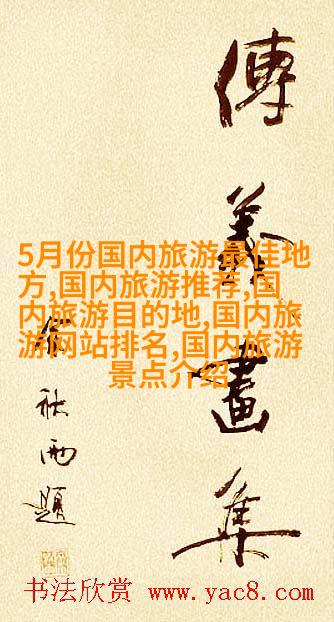 義畫集
雨題
5月份国内旅游最佳地
方,国内旅游推荐,国
内旅游目的地,国内旅
游网站排名,国内旅游
景点介绍
书法欣赏 www.yac8.com